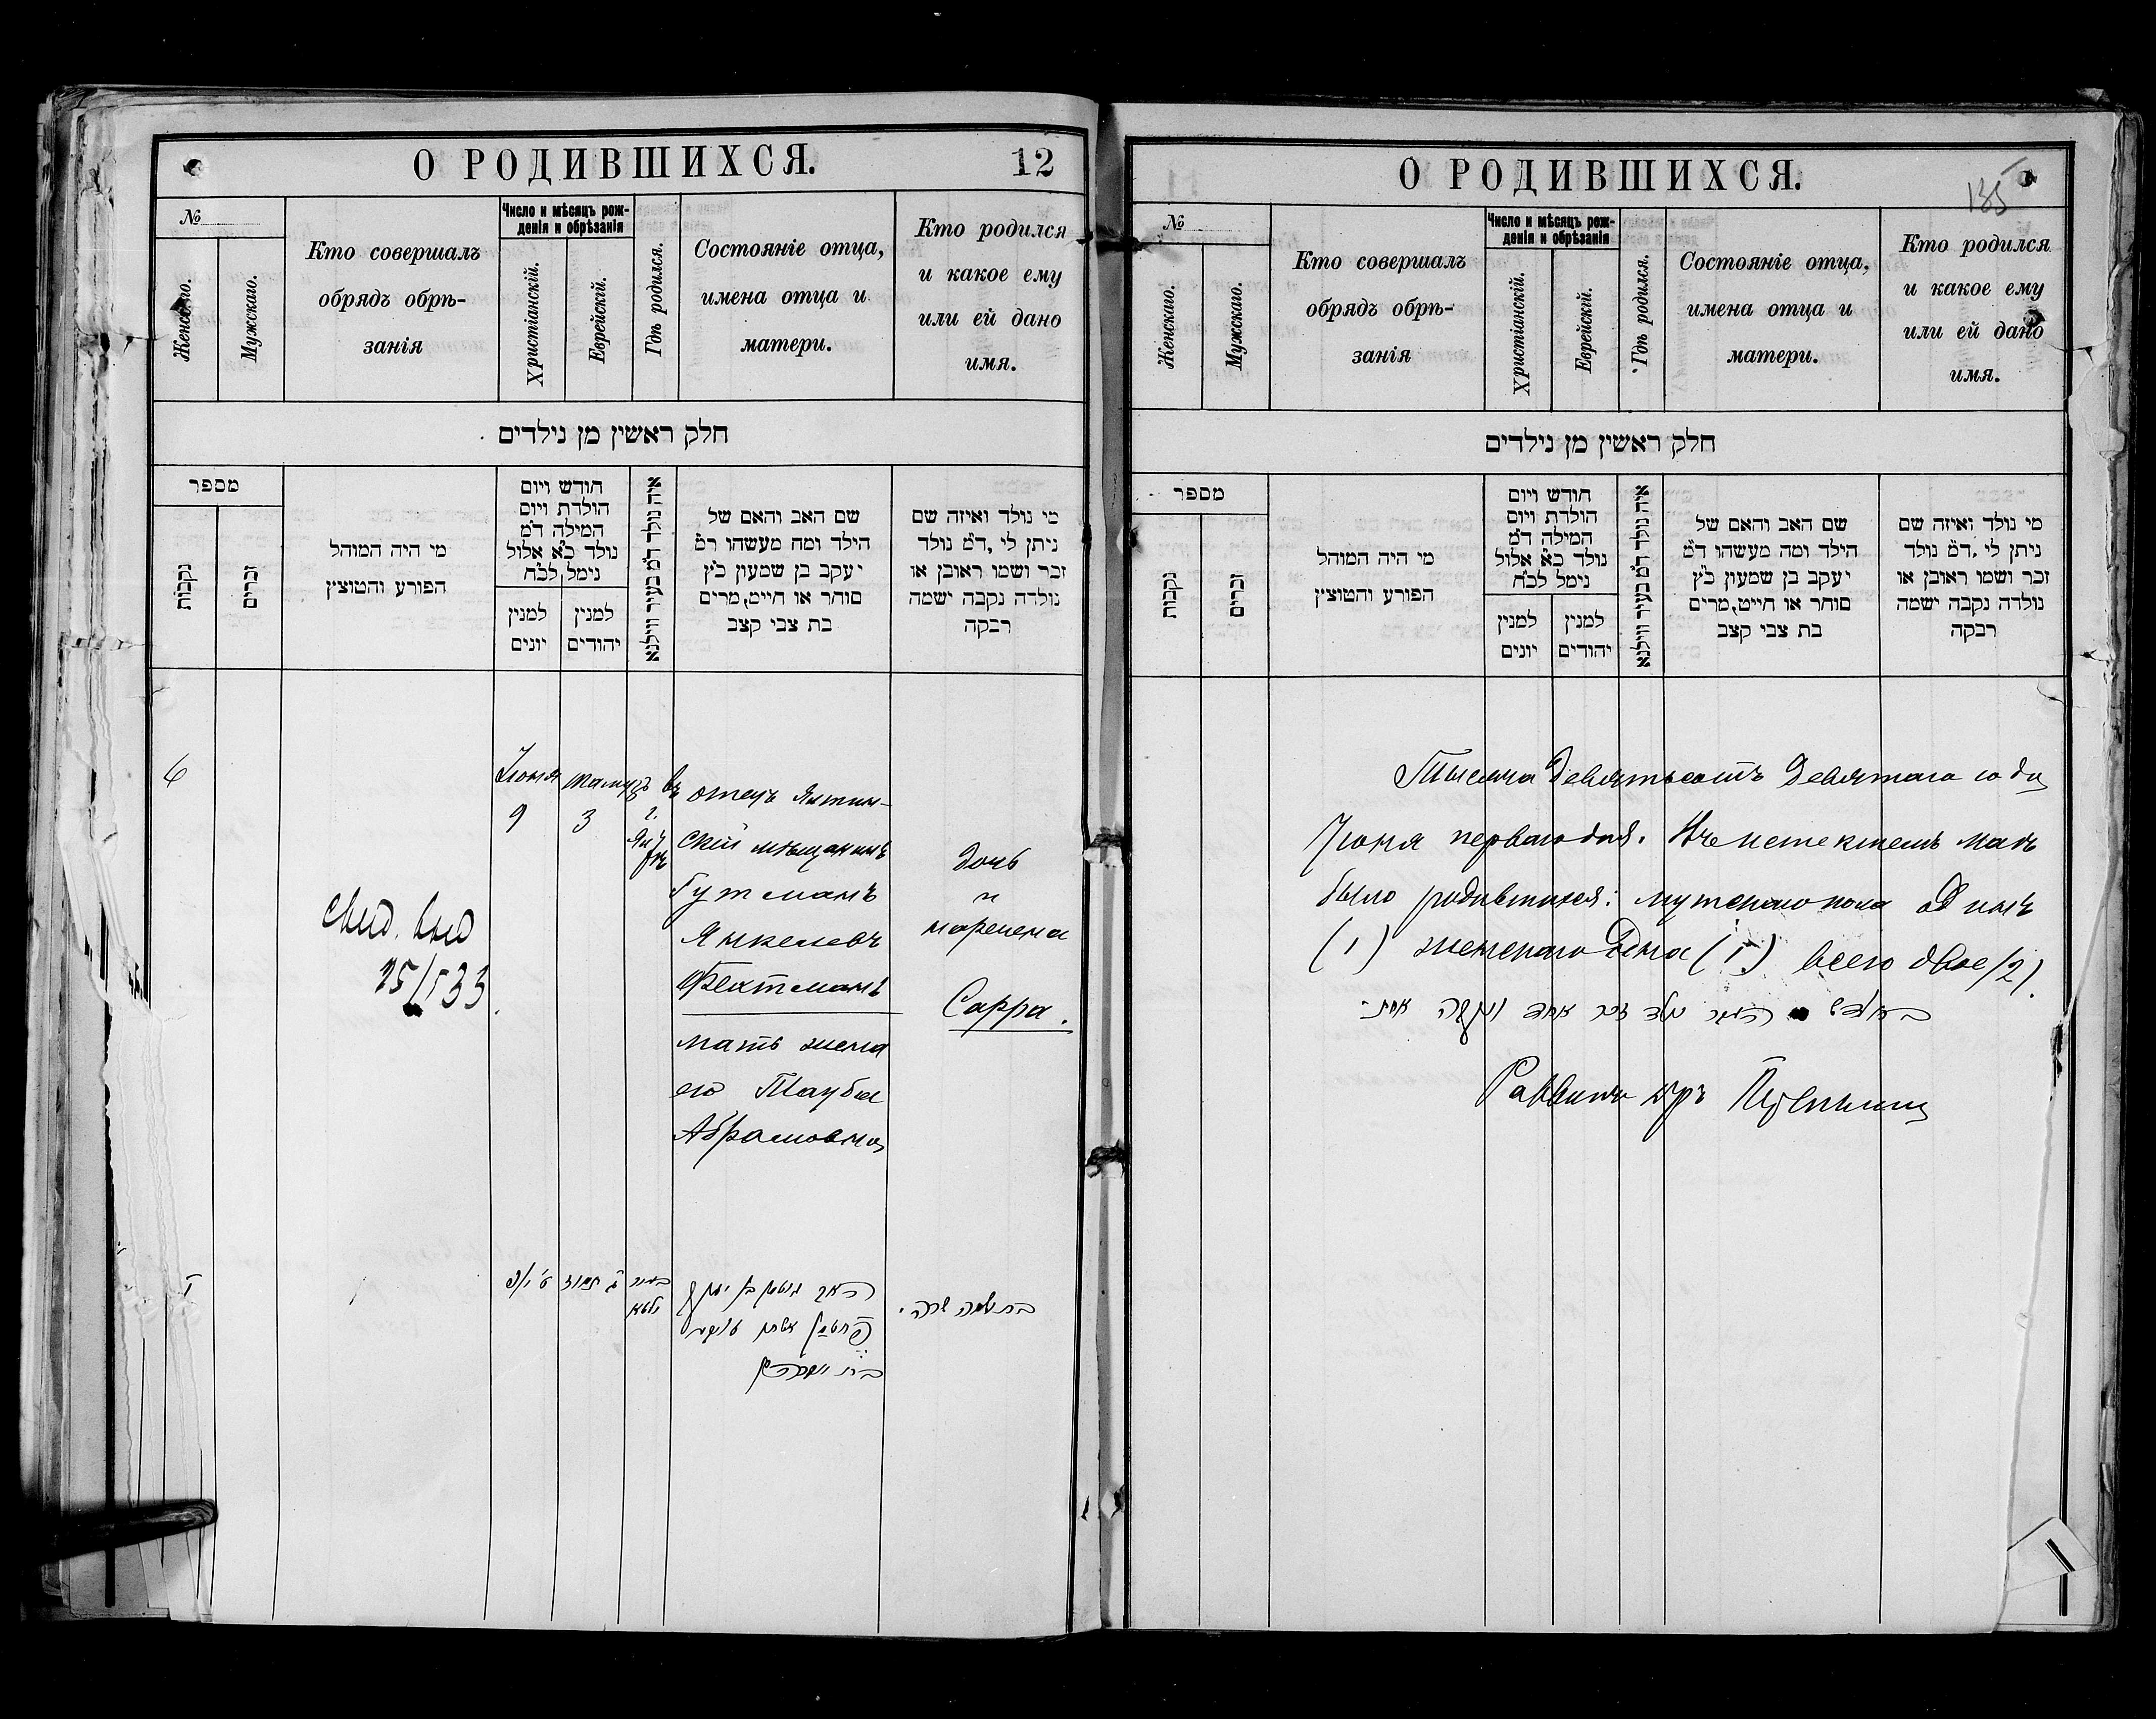 О РОДИВШИХСЯ.
12
№
Женскаго.
Мужскаго.
Кто совершалъ
обрядъ обрѣ-
занія
Число и мѣсяцъ рож-
денія и обрѣзанія
Христіанскій.
Еврейскій.
Гдѣ родился.
Состояніе отца,
имена отца и
матери.
Кто родился
и какое ему
или ей дано
имя.
חלק ראשין מן נילדים
מספר
נקבות
זכרים
מי היה המוהל
הפורע והטוצץ
חודש ויום
הולדת ויום
המילה ד״מ
נולד כ״א אלול
נימל לכ״ח
למנין
יונים
למנין
יהודים
איה נולד ד״מ בעיר ווילנא
שם האב והאם של
הילד ומה מעשהו ד״מ
יעקב בן שמעון כ״ץ
סוחר או חייט, מרים
בת צבי קצב
מי נולד ואיזה שם
ניתן לי, ד״מ נולד
זכר ושמו ראובן או
נולדה נקבה ישמה
רבקה
Іюня
9
тамузъ
3
въ
отецъ Ялтин-
скій мѣщанинъ
Гутманъ
Янкелевъ
Фехтманъ
мать жена
его Тауба
Абрамовна
дочь
наречена
Сарра.
25/533
ג׳ תמוז
О РОДИВШИХСЯ.
185
№
Женскаго.
Мужскаго.
Кто совершалъ
обрядъ обрѣ-
занія
Число и мѣсяцъ рож-
денія и обрѣзанія
Христіанскій.
Еврейскій.
Гдѣ родился.
Состояніе отца,
имена отца и
матери.
Кто родился
и какое ему
или ей дано
имя.
חלק ראשין מן נילדים
מספר
נקבות
זכרים
מי היה המוהל
הפורע והטוצץ
חודש ויום
הולדת ויום
המילה ד״מ
נולד כ״א אלול
נימל לכ״ח
למנין
יונים
למנין
יהודים
איה נולד ד״מ בעיר ווילנא
שם האב והאם של
הילד ומה מעשהו ד״מ
יעקב בן שמעון כ״ץ
סוחר או חייט, מרים
בת צבי קצב
מי נולד ואיזה שם
ניתן לי, ד״מ נולד
זכר ושמו ראובן או
נולדה נקבה ישמה
רבקה
Тысяча девятьсотъ девятаго года
Іюня перваго дня. Въ истекшемъ маѣ
было родившихся: мужскаго пола одинъ
(1) женскаго одна (1) всего двое (2).
נולד זכר אחד ונקבה אחת
Раввинъ